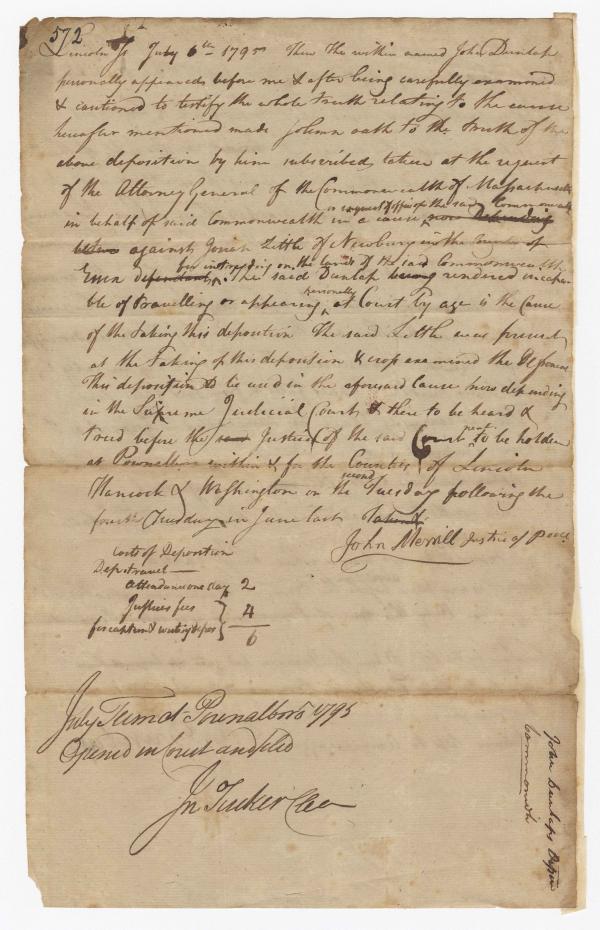 572
Lincoln ss July 6th 1795 Then the within named John Dunlap
personally appeared before me & after being carefully examined
& cautioned to testify the whole truth relating to the cause
hereafter mentioned made solemn oath to the truth of the
above deposition by him subscribed, taken at the request
of the Attorney General of the Commonwealth of Massachusetts
in behalf of said Commonwealth in a cause now depending
against Josiah Little of Newbury in the County of
Essex defendant for intruding on the lands of the said Commonwealth
The said Dunlap being rendered incapa
ble of travelling or appearing personally at Court by age is the Cause
of the taking this deposition The said Little was present
at the taking of this deposition & cross examined the deponent
This deposition to be used in the aforesaid cause now depending
in the Supreme Judicial Court & there to be heard &
tried before the Justices of the said Court next to be holden
at Pownalboro within & for the Counties of Lincoln
Hancock & Washington on the second Tuesday following the
fourth Tuesday in June last
John Merrill Justice of Peace
Costs of Deposition
Depts travel —
attendance one day 2
Justices fees
for caption & writing depos } 4
6
July Term at Pownalboro 1795
Opened in Court and filed
Jn Tucker Cler
John Dunlaps Depon
Commonwth